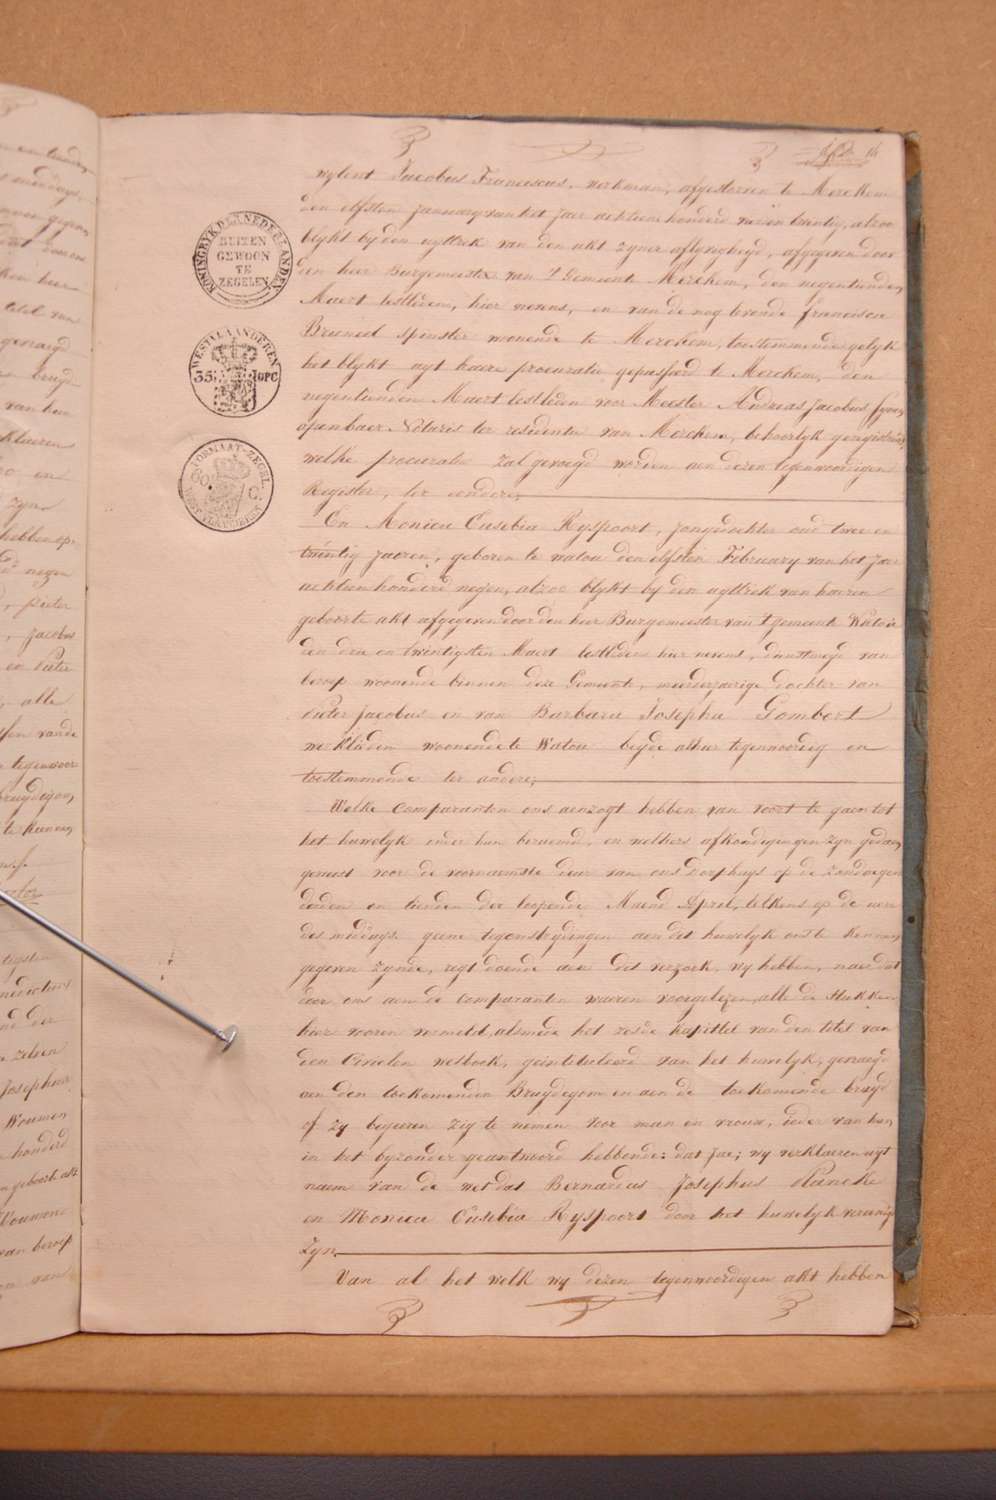 wylent Jacobus Franciscus, werkman, afgestorven te Merckem
den elfsten January van het Jaer achtien honderd en twintig, alzoo
blykt by den uyttrek van den akt zyner aflyvigheyd, afgegeven door
den heer Burgemeester van 't Gemeente Merckem, den negentienden
Maert lestleden, hier nevens, en van de nog levende francisca
Bruneel spinster wonende te Merckem, toestemmende gelyk
het blykt uyt haere procuratie gepasseerd te Merckem, den
negentienden Maert lestleden voor Meester Andreas Jacobus
openbaer Notaris ter residentie van Merckem, behoorlyk geregistreerd
welke procuratie zal gevoegd worden aen dezen tegenwoordigen
Register, ter eendere;
En Monica Eusebia Ryspoort, jongedochter oud twee en
twintig Jaeren, geboren te watou den elfsten February van het Jaer
achtien honderd negen, alzoo blykt by den uyttrek van haeren
geboorte akt afgegeven door den heer Burgemeester van 't gemeente Watou
den drie en twintigsten Maert lestleden hier nevens, dienstmeyd van
beroep woonende binnen deze Gemeente, meerderjaerige dochter van
Pieter Jacobus en van Barbara Josepha Gombert
werklieden woonende te Watou beyde alhier tegenwoordig en
toestemmende ter andere;
Welke Comparanten ons aenzogt hebben van voort te gaen tot
het huwelyk onder hun beraemd, en welkers afkondigingen zyn gedaen
geweest voor de voornaemste deur van ons Dorphuys op de zondagen
derden en tienden der loopende Maend April, telkens op de uere
des middags geene tegenstrydingen aen dit huwelyk ons te kennen
gegeven zynde, regt doende aen dit verzoek, wy hebben, naer dat
door ons aen de Comparanten waeren voorgelezen alle de stukken
hier vooren vermeld, alsmede het zesde kapittel van den titel van
den Civielen wetboek, geintituleerd van het huwelyk, gevraegd
aen den toekomenden Bruydegom en aen de toekomende bruyd
of zy begeeren zig te nemen voor man en vrouw, ieder van hun
in het byzonder geantwoord hebbende: dat Jae; wy verklaeren uyt
naem van de wet dat Bernardus Josephus Plancke
en Monica Eusebia Ryspoort door het huwelyk vereenigt
zyn
Van al het welk wy dezen tegenwoordigen akt hebben
KONINGRYK DER NEDERLANDEN
BUITEN
GEWOON
TE
ZEGELEN
WESTVLAANDEREN
35
10PC
FORMAAT-ZEGEL
60
C.
WESTVLAANDEREN